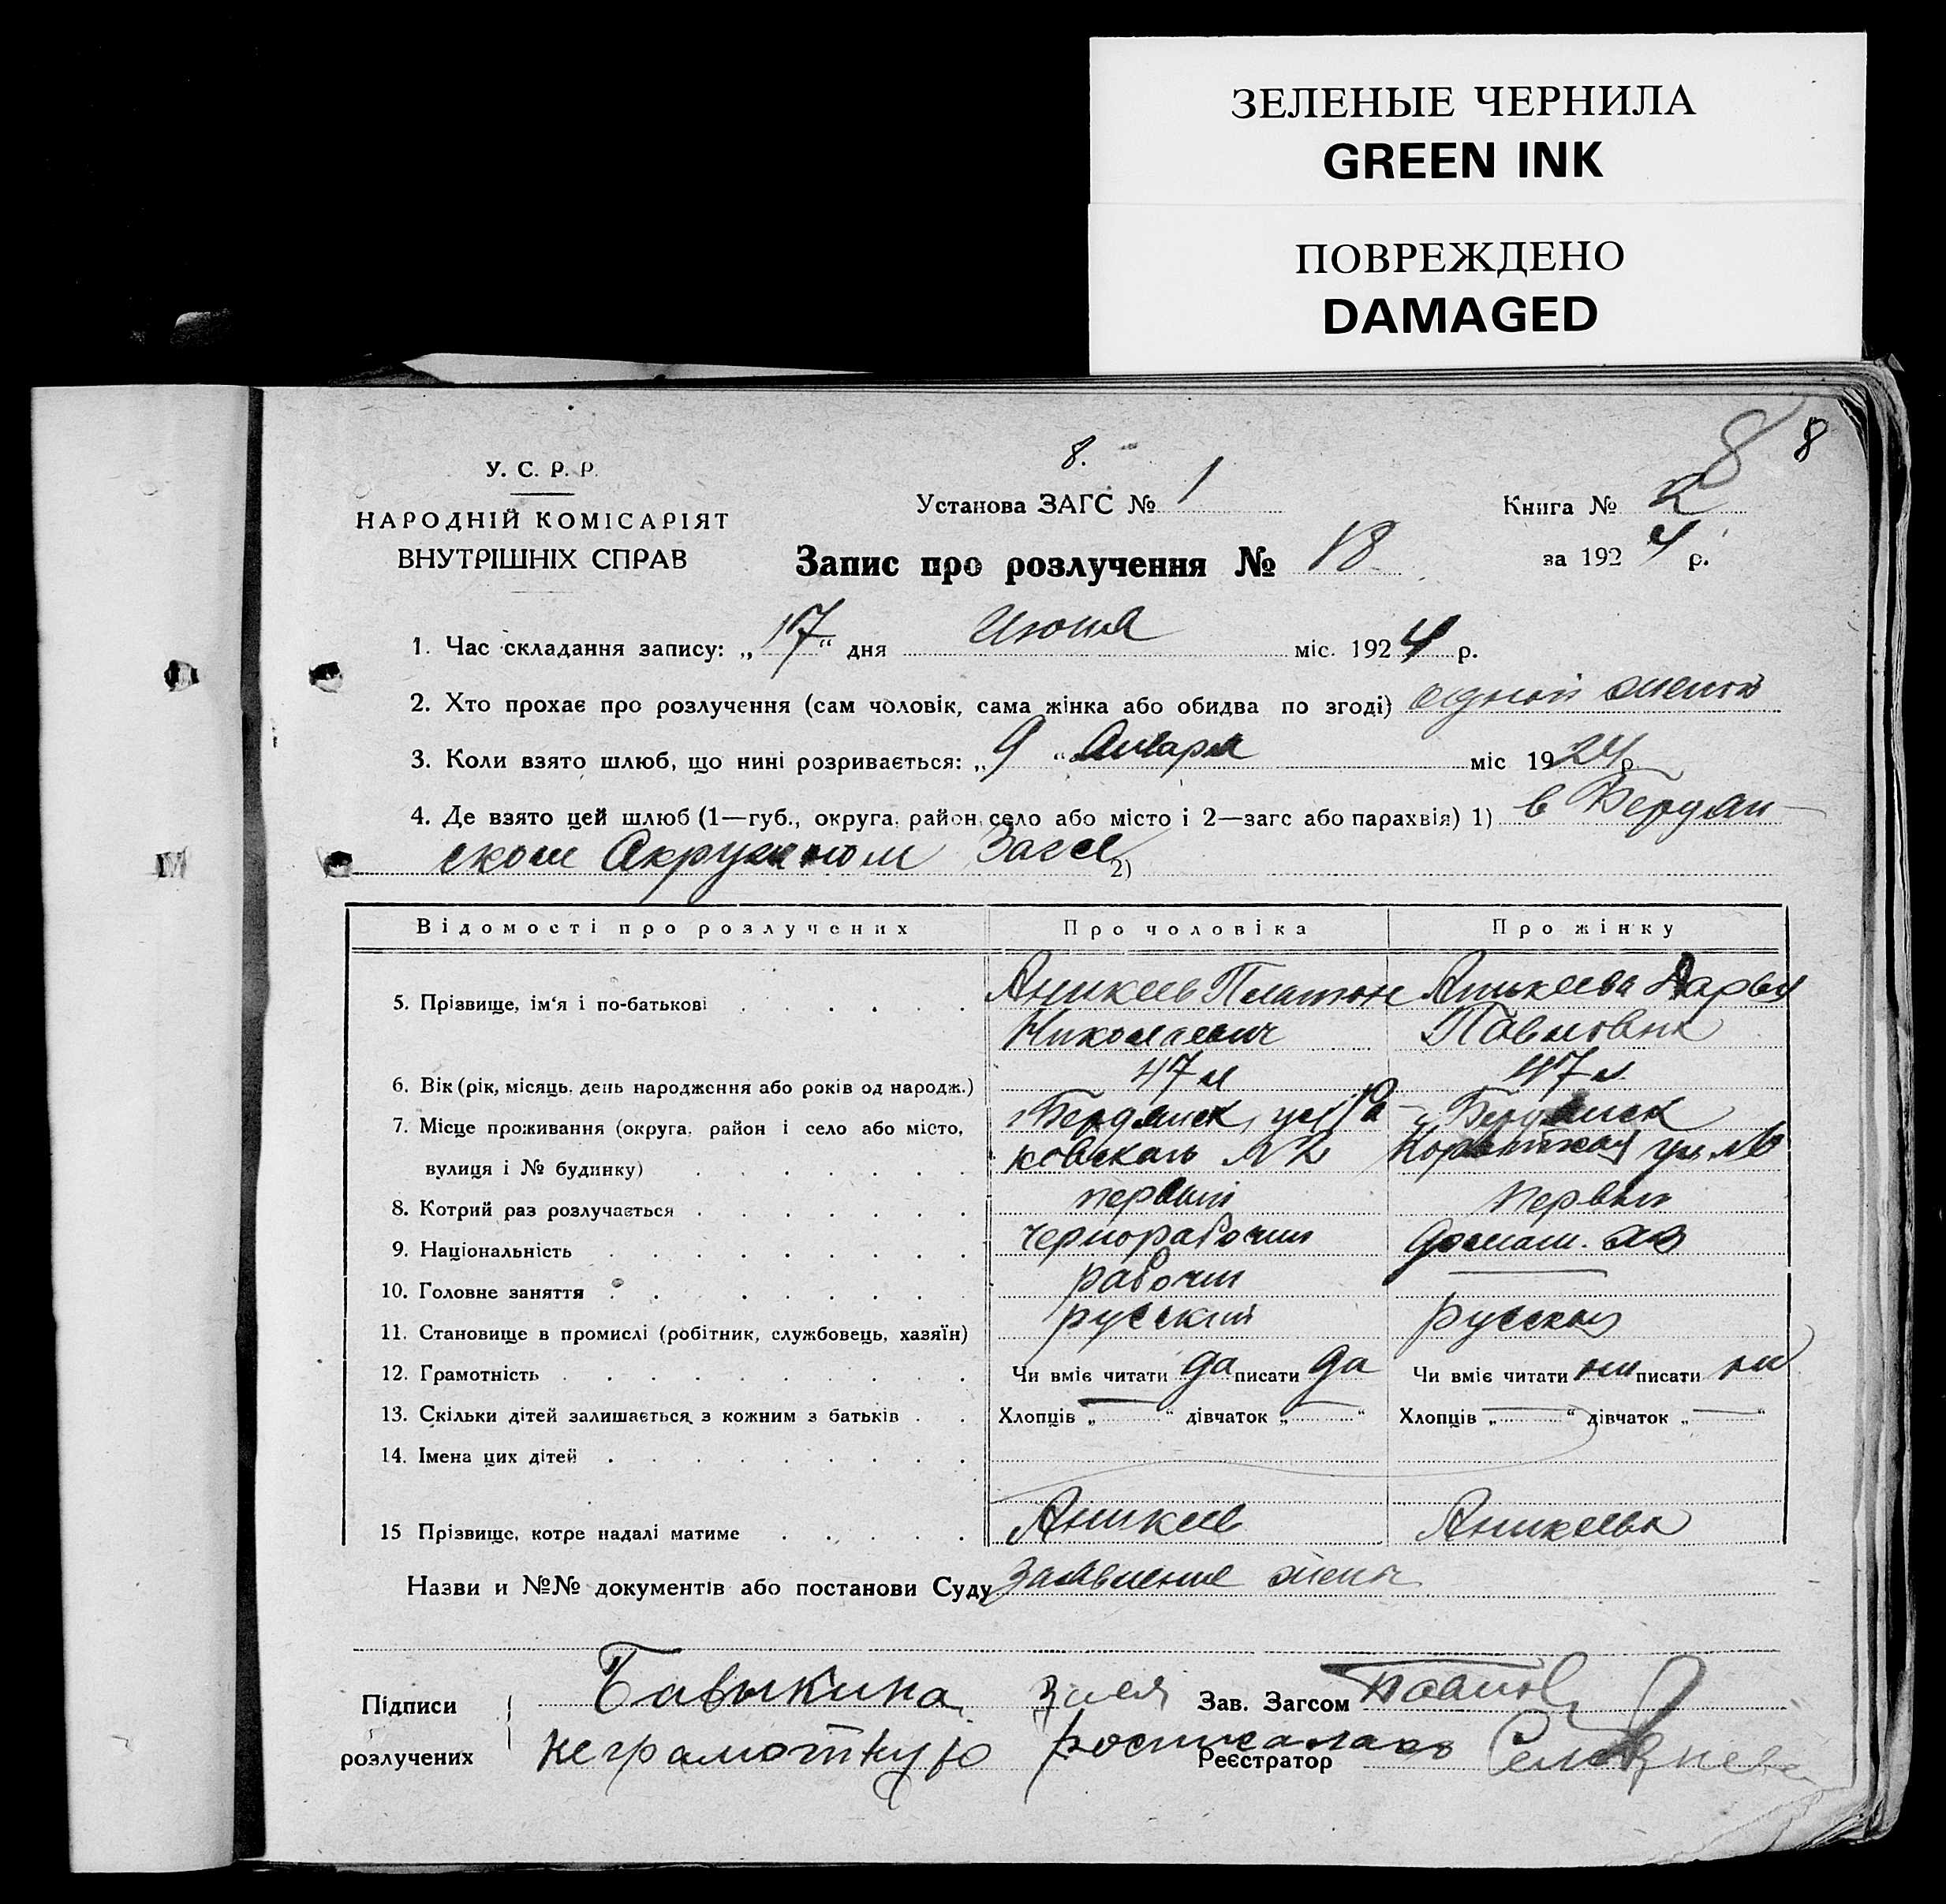 ЗЕЛЕНЫЕ ЧЕРНИЛА
GREEN INK
ПОВРЕЖДЕНО
DAMAGED
8 8
8.
У. С. Р. Р.
НАРОДНІЙ КОМІСАРІЯТ
ВНУТРІШНІХ СПРАВ
Установа ЗАГС № 1
Книга № 2
за 1924 р.
Запис про розлучення № 18
1. Час складання запису: „17“ дня Июня міс. 1924 р.
2. Хто прохає про розлучення (сам чоловік, сама жінка або обидва по згоді) одной жены
3. Коли взято шлюб, що нині розривається: „9“ Января міс 1924 р.
4. Де взято цей шлюб (1—губ., округа, район, село або місто і 2—загс або парахвія) 1) в Бердян-
ском Акружном Загсе 2)
Відомості про розлучених Про чоловіка Про жінку
5. Прізвище, ім‘я і по-батькові Аникеев Платон Аникеева Дарья
Николаевич Павловна
6. Вік (рік, місяць, день народження або років од народж.) 47 л 47 л.
7. Місце проживання (округа, район і село або місто, Бердянск, Бердянск
вулиця і № будинку) № 2
8. Котрий раз розлучається первый первый
9. Національність чернорабочий домаш. хоз
10. Головне заняття рабочий —
11. Становище в промислі (робітник, службовець, хазяїн) русский русская
12. Грамотність Чи вміє читати да писати да Чи вміє читати писати
13. Скільки дітей залишається з кожним з батьків Хлопців „—“ дівчаток „—“ Хлопців „—“ дівчаток „—“
14. Імена цих дітей
15 Прізвище, котре надалі матиме Аникеев Аникеева
Назви и №№ документів або постанови Суду Заявление жены
Підписи Бавыкина Зав. Загсом Павлов
розлучених неграмотную росписалась Реєстратор